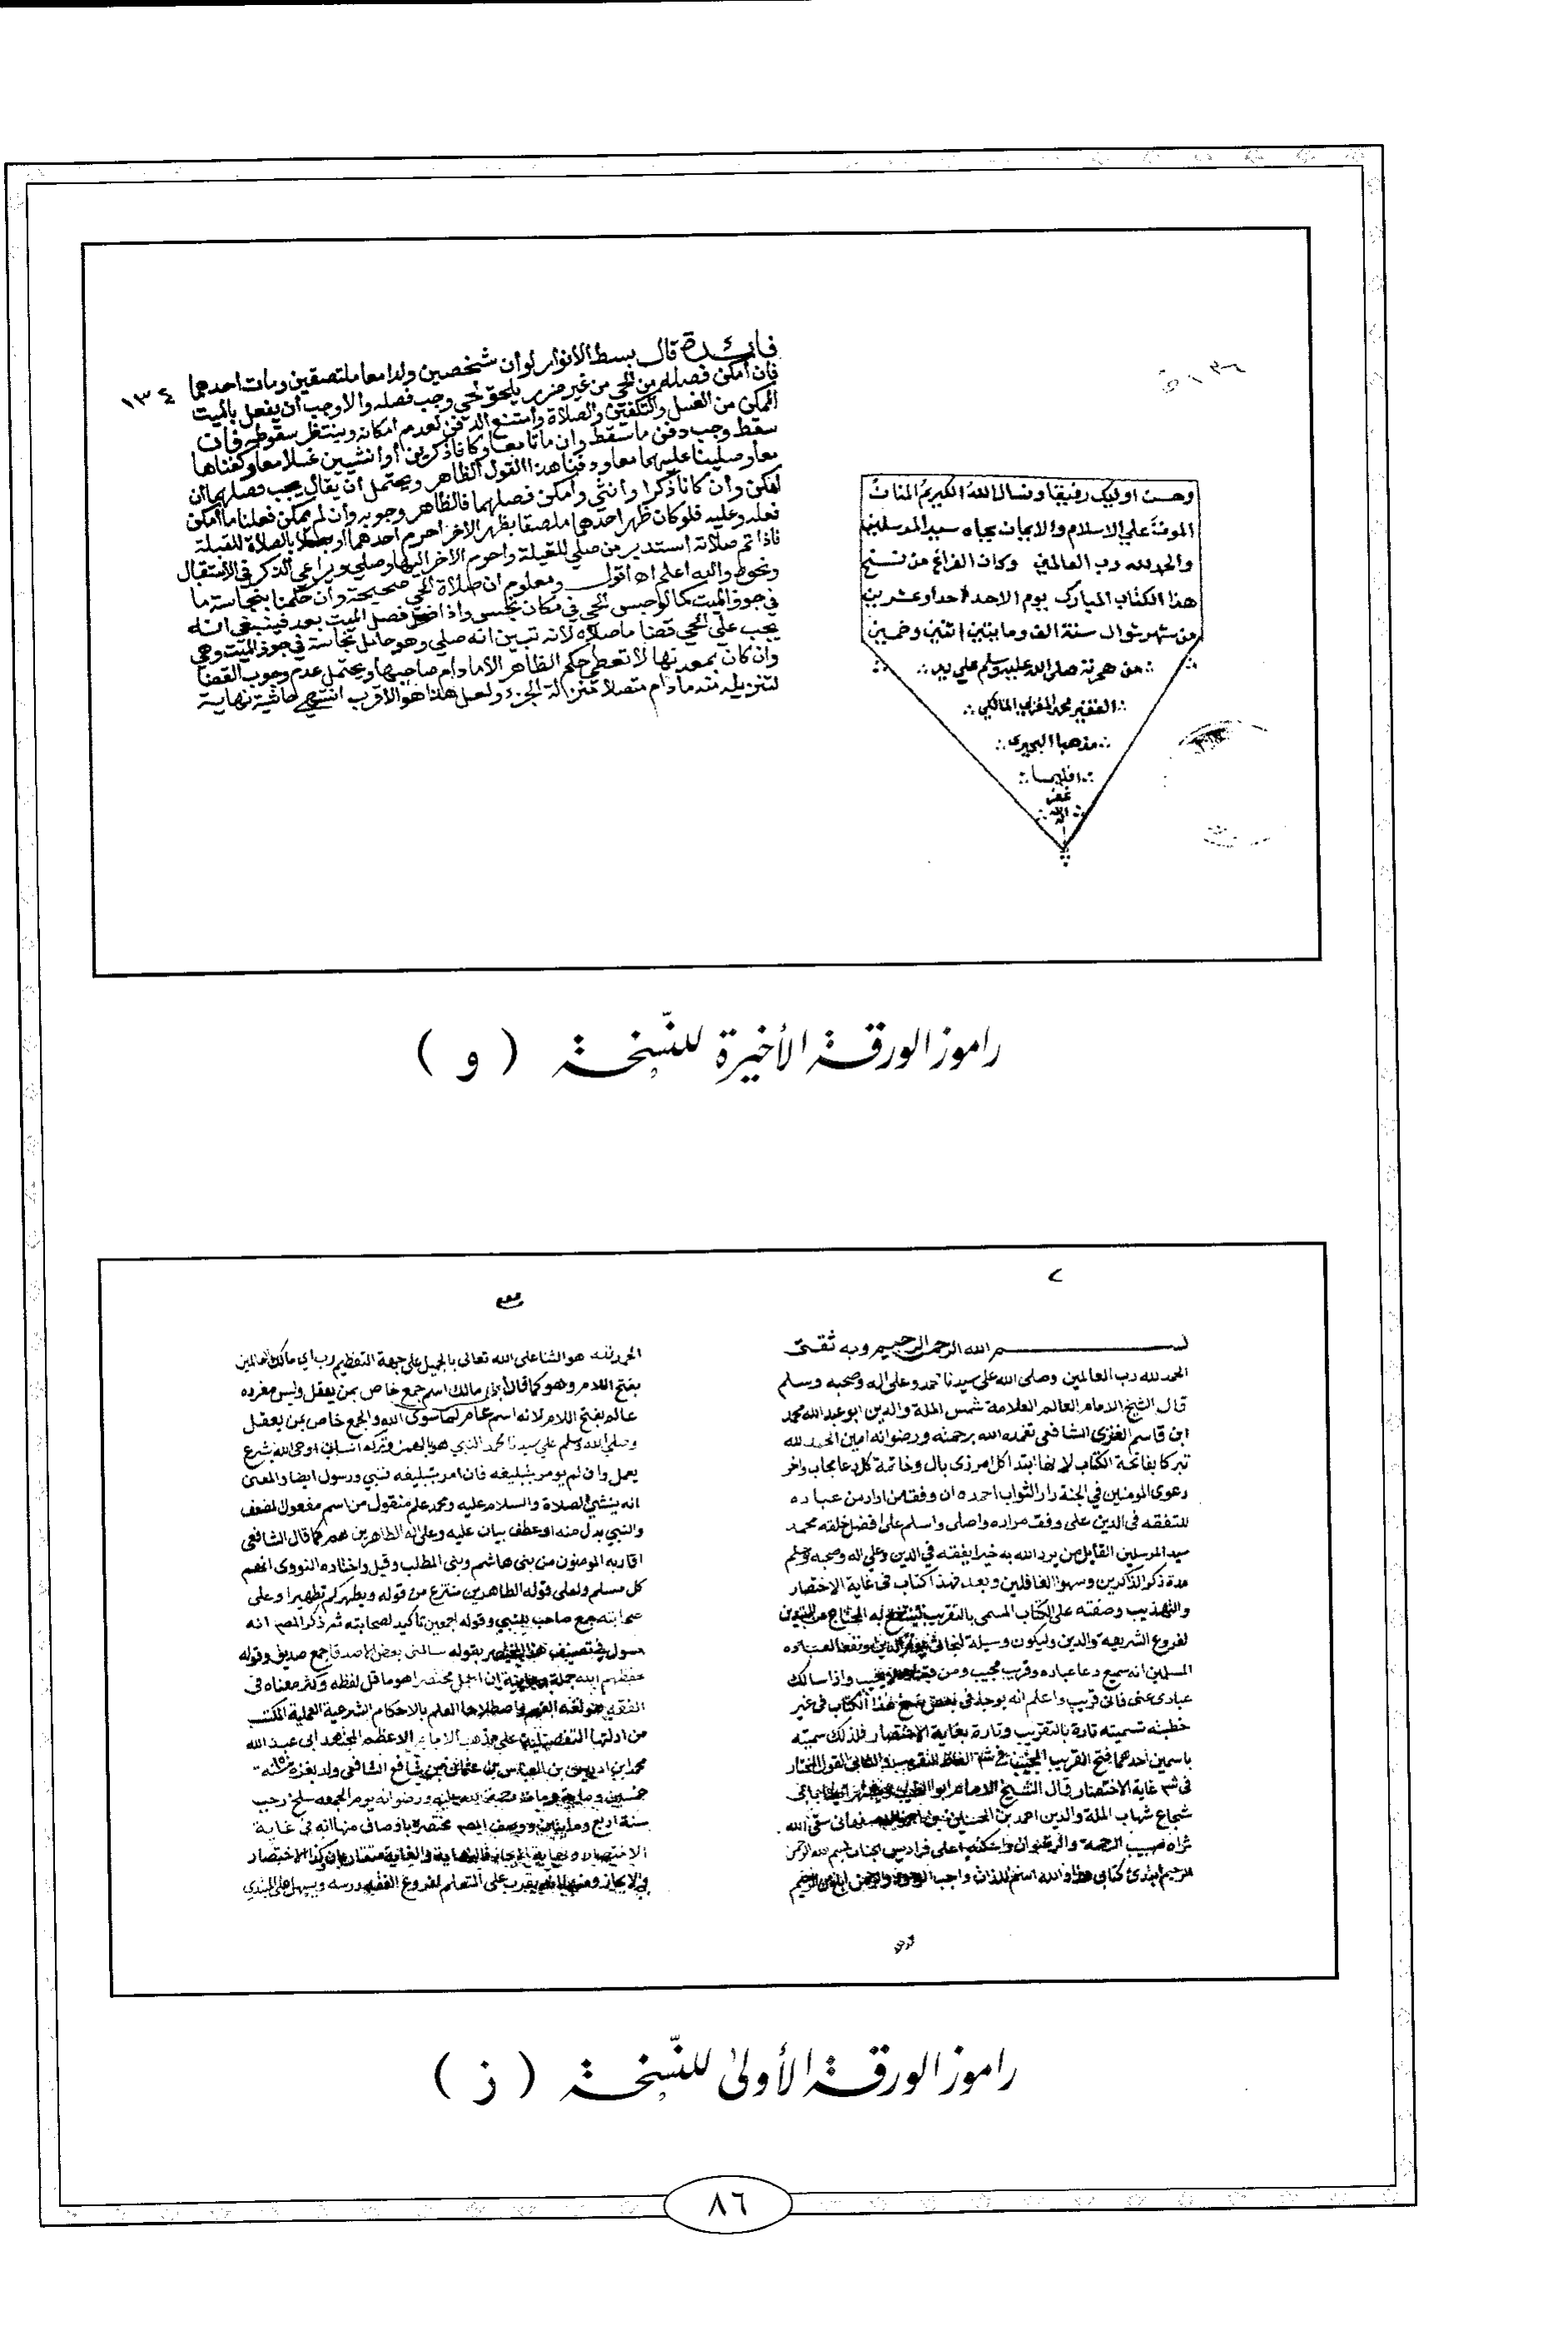 وحسن اوليك رفيقا ونسال الله الكريم المنان
الموت على الاسلام والايمان بجاه سيد المرسلين
والحمد لله رب العالمين وكان الفراغ من نسخ
هذا الكتاب المبارك يوم الاحد احد وعشرين
من شهر شوال سنة الف ومايتين اثنين وخمسين
من هجرته صلى الله عليه وسلم على يد
الفقير محمد المغربي المالكي
مذهبا البحيرى
اقليما
غفر
الله
له
١٣٤
فائدة قال بسط الانوار لو أن شخصين ولدا معا ملتصقين ومات احدهما
فإن أمكن فصله من الحي من غير ضرر يلحق الحي وجب فصله والا وجب أن يفعل بالميت
الممكن من الغسل والتكفين والصلاة وامتنع الدفن لعدم امكانه وينتظر سقوطه فإن
سقط وجب دفن ما سقط وان ماتا معا وكانا ذكرين أو انثيين غسلا معا وكفناهما
معا وصلينا عليهما معا ودفنا هذا القول الظاهر ويحتمل أن يقال يجب فصلهما إن
امكن وان كانا ذكرا وانثى وأمكن فصلهما فالظاهر وجوبه وان لم يمكن فعلنا ما أمكن
فعله وعليه فلو كان ظهر احدهما ملصقا بظهر الاخر احرم أحدهما بالصلاة للقبلة
فاذا تم صلاته استدبر من صلى للقبلة واحرم الاخر اليها وصلى ويراعى الذكر في الاستقبال
ونحوه والله اعلم اه اقول ومعلوم ان صلاة الحي صحيحة وان حكمنا بنجاسة ما
في جوف الميت كما لو حبس الحي في مكان نجس واذا فصل الميت بعد فينبغي انه
يجب على الحي قضا ما صلاه لانه تبين انه صلى وهو حامل نجاسة في جوف الميت وهي
وان كان بمعدنها لا تعطى حكم الظاهر الا ما دام صاحبها ويحتمل عدم وجوب القضا
لتنزيله منه ما دام متصلا منزلة الجزء ولعل هذا هو الاقرب انتهى حاشية نهاية
راموز الورقة الأخيرة للنّسخة ( و )
٢
بسم الله الرحمن الرحيم وبه ثقتى
الحمد لله رب العالمين وصلى الله على سيدنا محمد وعلى اله وصحبه وسلم
قال الشيخ الامام العالم العلامة شمس الملة والدين ابو عبد الله محمد
ابن قاسم الغزى الشافعى تغمده الله برحمته ورضوانه امين الحمد لله
تبركا بفاتحة الكتاب لانها ابتدا كل امر ذى بال وخاتمة كل دعا مجاب واخر
دعوى المومنين في الجنة دار الثواب احمده ان وفق من اراد من عباده
للتفقه فى الدين على وفق مراده واصلى واسلم على افضل خلقه محمد
سيد المرسلين القايل من يرد الله به خيرا يفقه في الدين وعلى اله وصحبه وسلم
مدة ذكر الذاكرين وسهو الغافلين وبعد فهذا كتاب فى غاية الاختصار
والتهذيب وضعته على الكتاب المسمى بالتقريب لينتفع به المحتاج من المبتدين
لفروع الشريعة والدين وليكون وسيلة لنجاتى يوم الدين ونفعا لعباده
المسلمين انه سميع دعا عباده وقريب مجيب ومن قصده لا يخيب واذا سالك
عبادى عنى فانى قريب واعلم انه يوجد فى بعض نسخ هذا الكتاب فى غير
خطبته تسميته تارة بالتقريب وتارة بغاية الاختصار فلذلك سميته
باسمين احدهما فتح القريب المجيب فى شرح الفاظ التقريب والثانى القول المختار
فى شرح غاية الاختصار قال الشيخ الامام ابو الطيب
شجاع شهاب الملة والدين احمد بن الحسين بن احمد الاصفهانى سقى الله
ثراه صبيب الرحمة والرضوان واسكنه اعلى فراديس الجنان بسم الله الرحمن
الرحيم ابتدئ كتابى هذا والله اسم للذات واجب الوجود والرحمن ابلغ من الرحيم
الحمد لله هو الثنا على الله تعالى بالجميل على جهة التعظيم رب اي مالك العالمين
بفتح اللام وهو كما قال ابن مالك اسم جمع خاص بمن يعقل وليس مفرده
عالم بفتح اللام لانه اسم عام لما سوى الله والجمع خاص بمن يعقل
وصلى الله وسلم على سيدنا محمد النبي هو بالهمز وتركه انسان اوحى الله بشرع
يعمل وان لم يومر بتبليغه فان امر بتبليغه فنبي ورسول ايضا والمعنى
انه ينشئ الصلاة والسلام عليه ومحمد علم منقول من اسم مفعول المضعف
والنبي بدل منه او عطف بيان عليه وعلى اله الطاهرين هم كما قال الشافعى
اقاربه المومنون من بنى هاشم وبنى المطلب وقيل واختاره النووى انهم
كل مسلم ولعل قوله الطاهرين منتزع من قوله ويطهركم تطهيرا وعلى
صحابته جمع صاحب النبي وقوله اجمعين تأكيد لصحابته ثم ذكر المص انه
مسول فى تصنيف هذا المختصر بقوله سالنى بعض الاصدقا جمع صديق وقوله
حفظهم الله جملة دعايية ان اعمل مختصرا هو ما قل لفظه وكثر معناه فى
الفقه هو لغة الفهم واصطلاحا العلم بالاحكام الشرعية العملية المكتسب
من ادلتها التفصيلية على مذهب الامام الاعظم المجتهد ابى عبد الله
محمد ابن ادريس بن العباس بن عثمان بن شافع الشافعى ولد بغزة سنة
خمسين وماية ومات رحمة الله عليه ورضوانه يوم الجمعه سلخ رجب
سنة اربع ومايتين ووصف المص مختصره باوصاف منها انه فى غاية
الاختصار ونهاية الايجاز فالنهاية والغاية متقاربان وكذا الاختصار
والايجاز ومنها انه يقرب على المتعلم لفروع الفقه درسه ويسهل على المبتدي
راموز الورقة الأولى للنّسخة ( ز )
٨٦